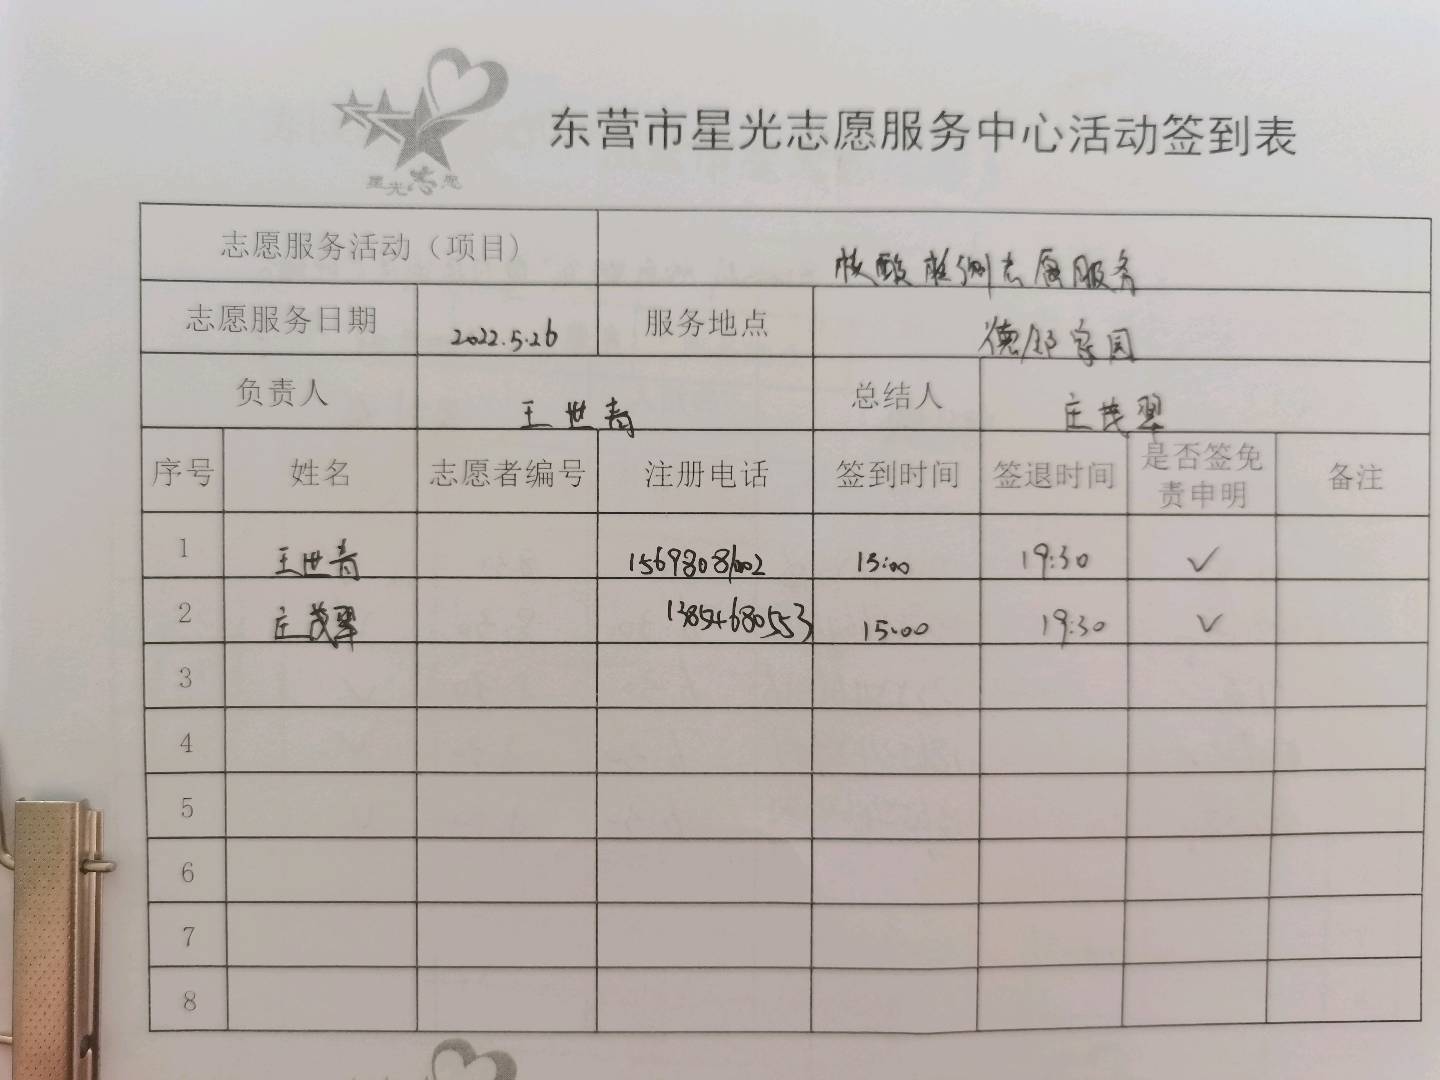 东营市星光志愿服务中心活动签到表
星光志愿
志愿服务活动（项目） 核酸检测志愿服务
志愿服务日期 2022.5.26 服务地点 德邻家园
负责人 王世青 总结人 庄茂翠
序号 姓名 志愿者编号 注册电话 签到时间 签退时间 是否签免责申明 备注
1 王世青 15698081002 15:00 19:30 ✓
2 庄茂翠 13854680553 15:00 19:30 ✓
3
4
5
6
7
8